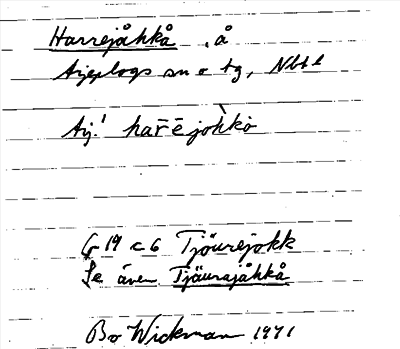 Harrejåhkå , å
Arjeplogs sn o tg, Nbtl
Arj.! har̄ējòhkò
G 19 c 6 Tjäurejokk
Se även Tjäurajåhkå
Bo Wickman 1971